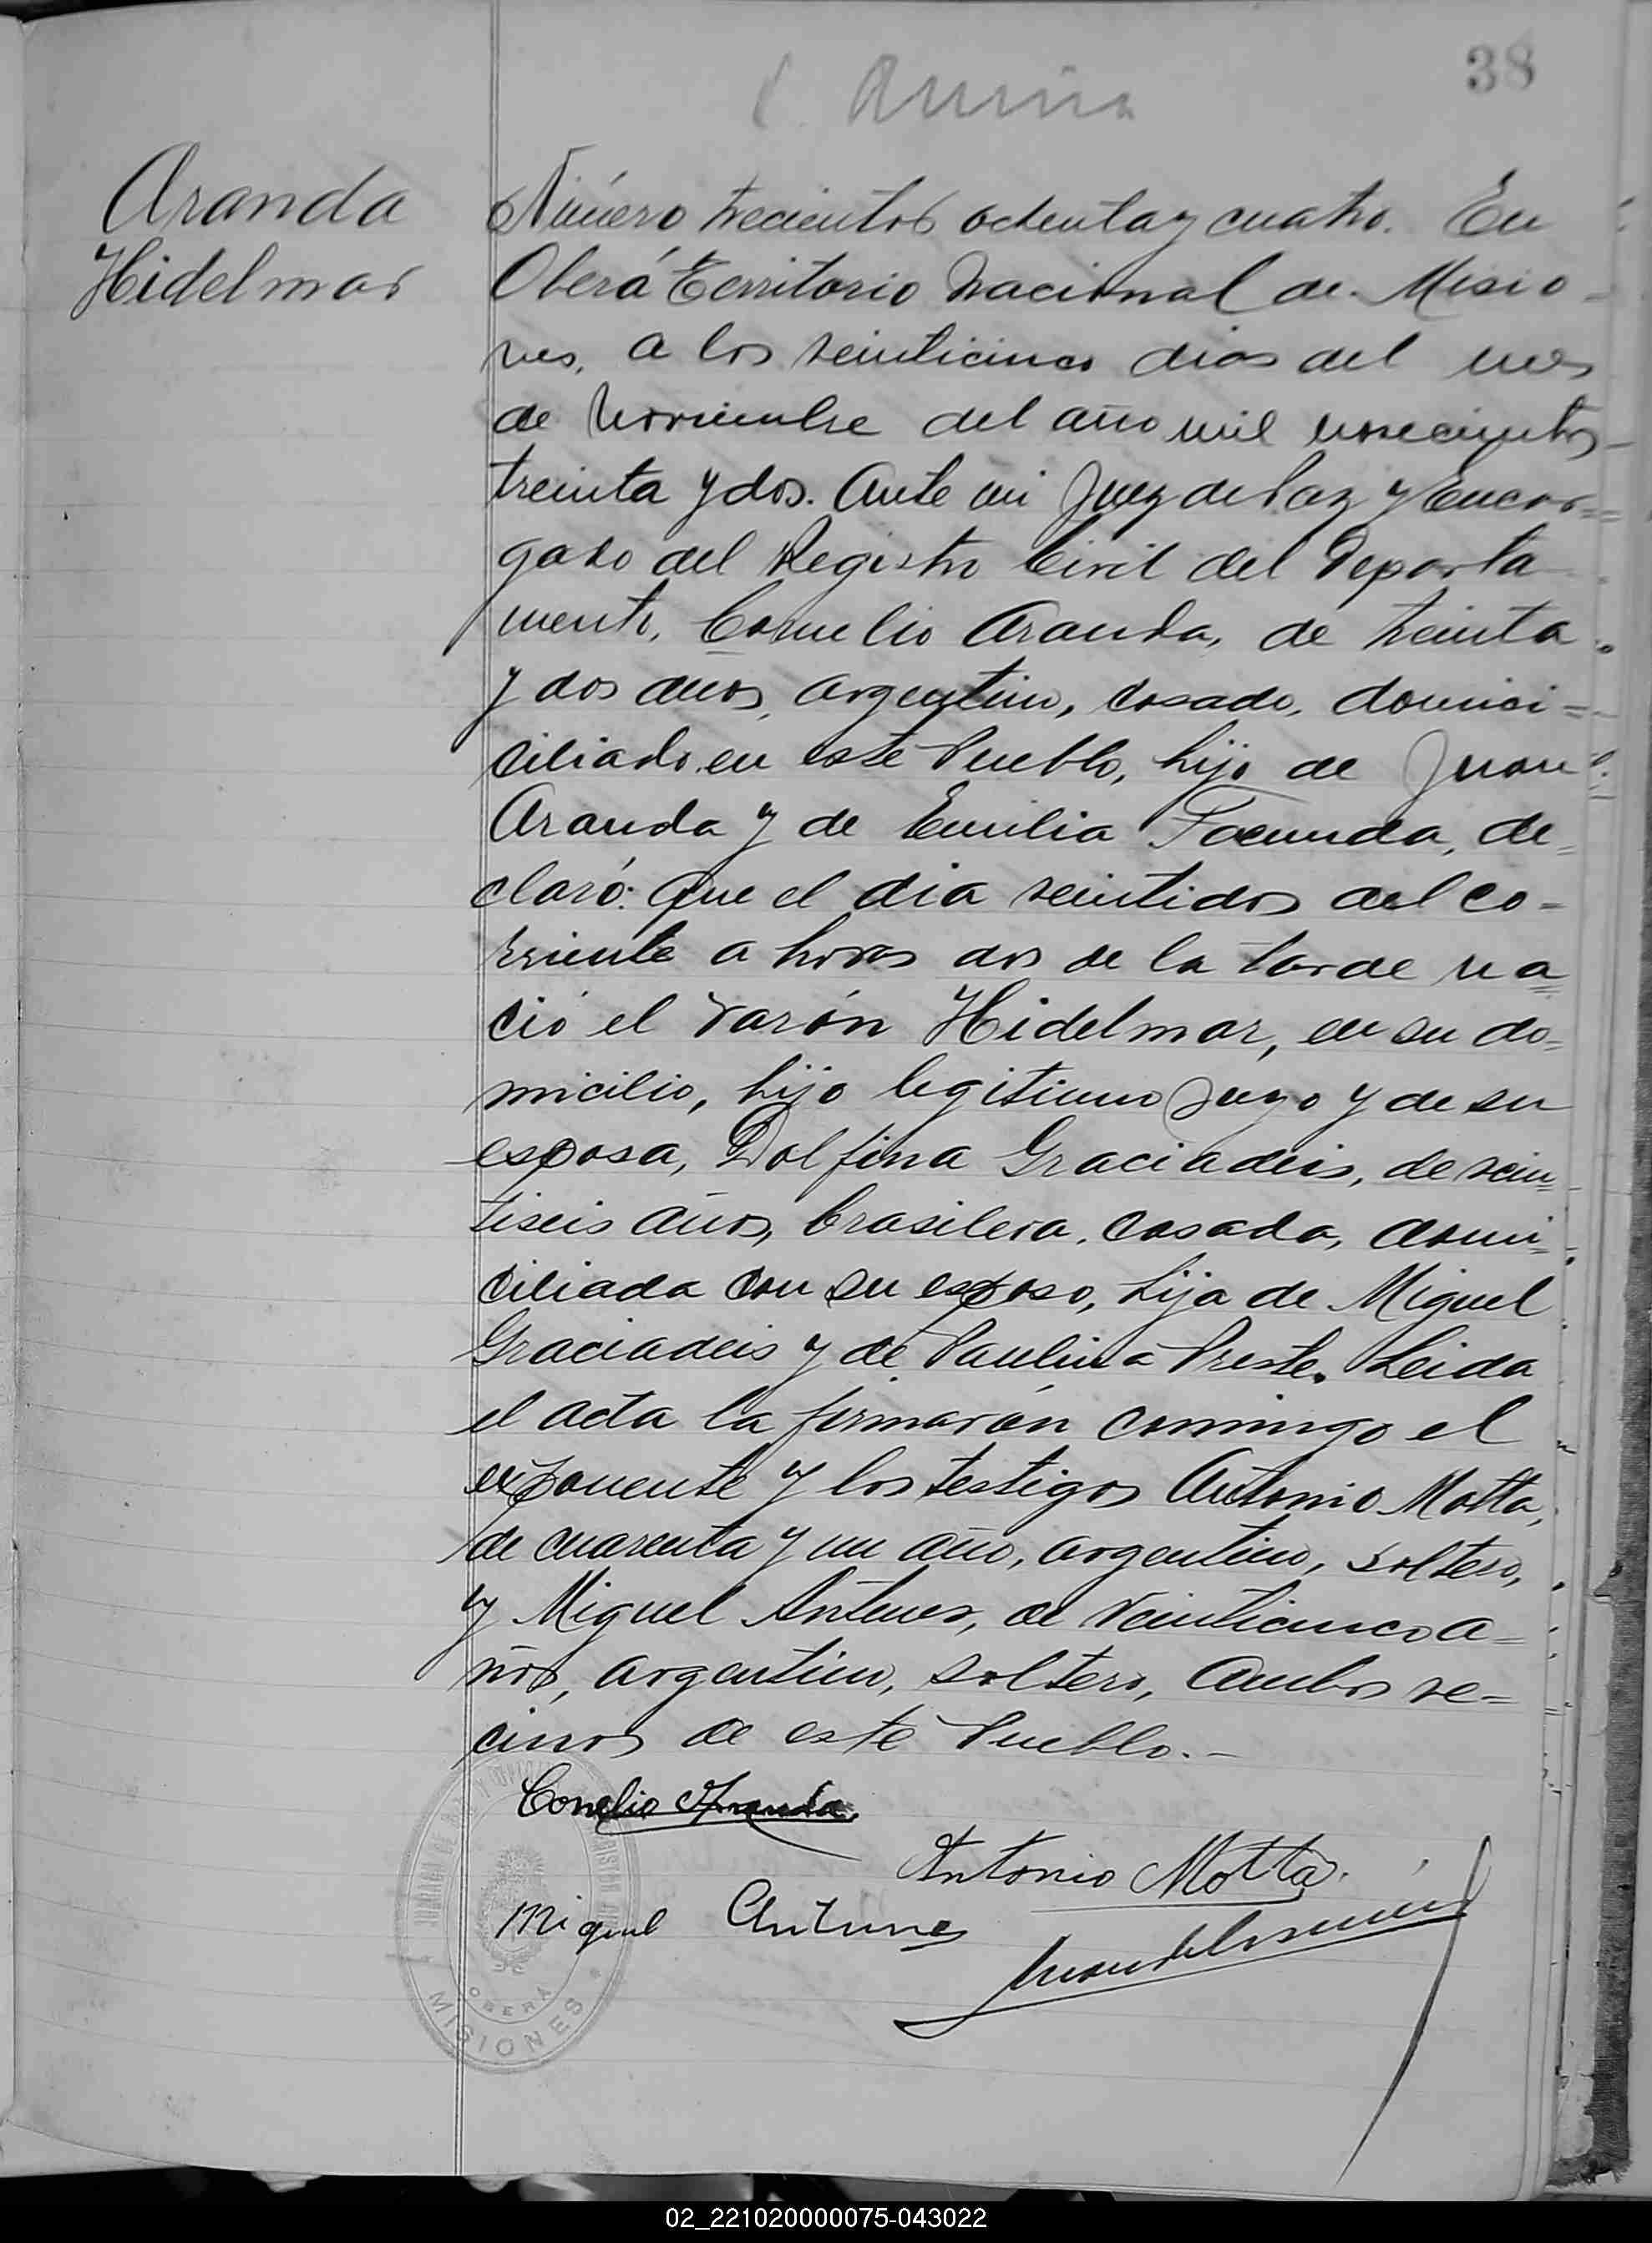 38
Aranda
Hidelmar
Número trecientos ochenta y cuatro. En
Oberá Territorio Nacional de Misio-
nes, a los veinticinco dias del mes
de Noviembre del año mil novecientos
treinta y dos. Ante mi Juez de Paz y Encar-
gado del Registro Civil del Departa
mento, Cornelio Aranda, de treinta
y dos años, argentino, casado, domici-
ciliado en este Pueblo, hijo de Juan
Aranda y de Emilia Facunda, de-
claró: que el dia veintidos del co-
rriente a horas dos de la tarde na
ció el varón Hidelmar, en su do-
micilio, hijo legitimo suyo y de su
esposa, Dolfina Graciadeis, de vein-
tiseis años, brasilera, casada, domi-
ciliada con su esposo, hija de Miguel
Graciadeis y de Paulina Preste. Leida
el acta la firmarón conmigo el
exponente y los testigos Antonio Motta,
de cuarenta y un año, argentino, soltero,
y Miguel Antunes, de veinticinco a-
ños, argentino, soltero, ambos ve-
cinos de este Pueblo.-
Cornelio Aranda
Antonio Motta
Miguel Antunes
OBERÁ
MISIONES
02_221020000075-043022